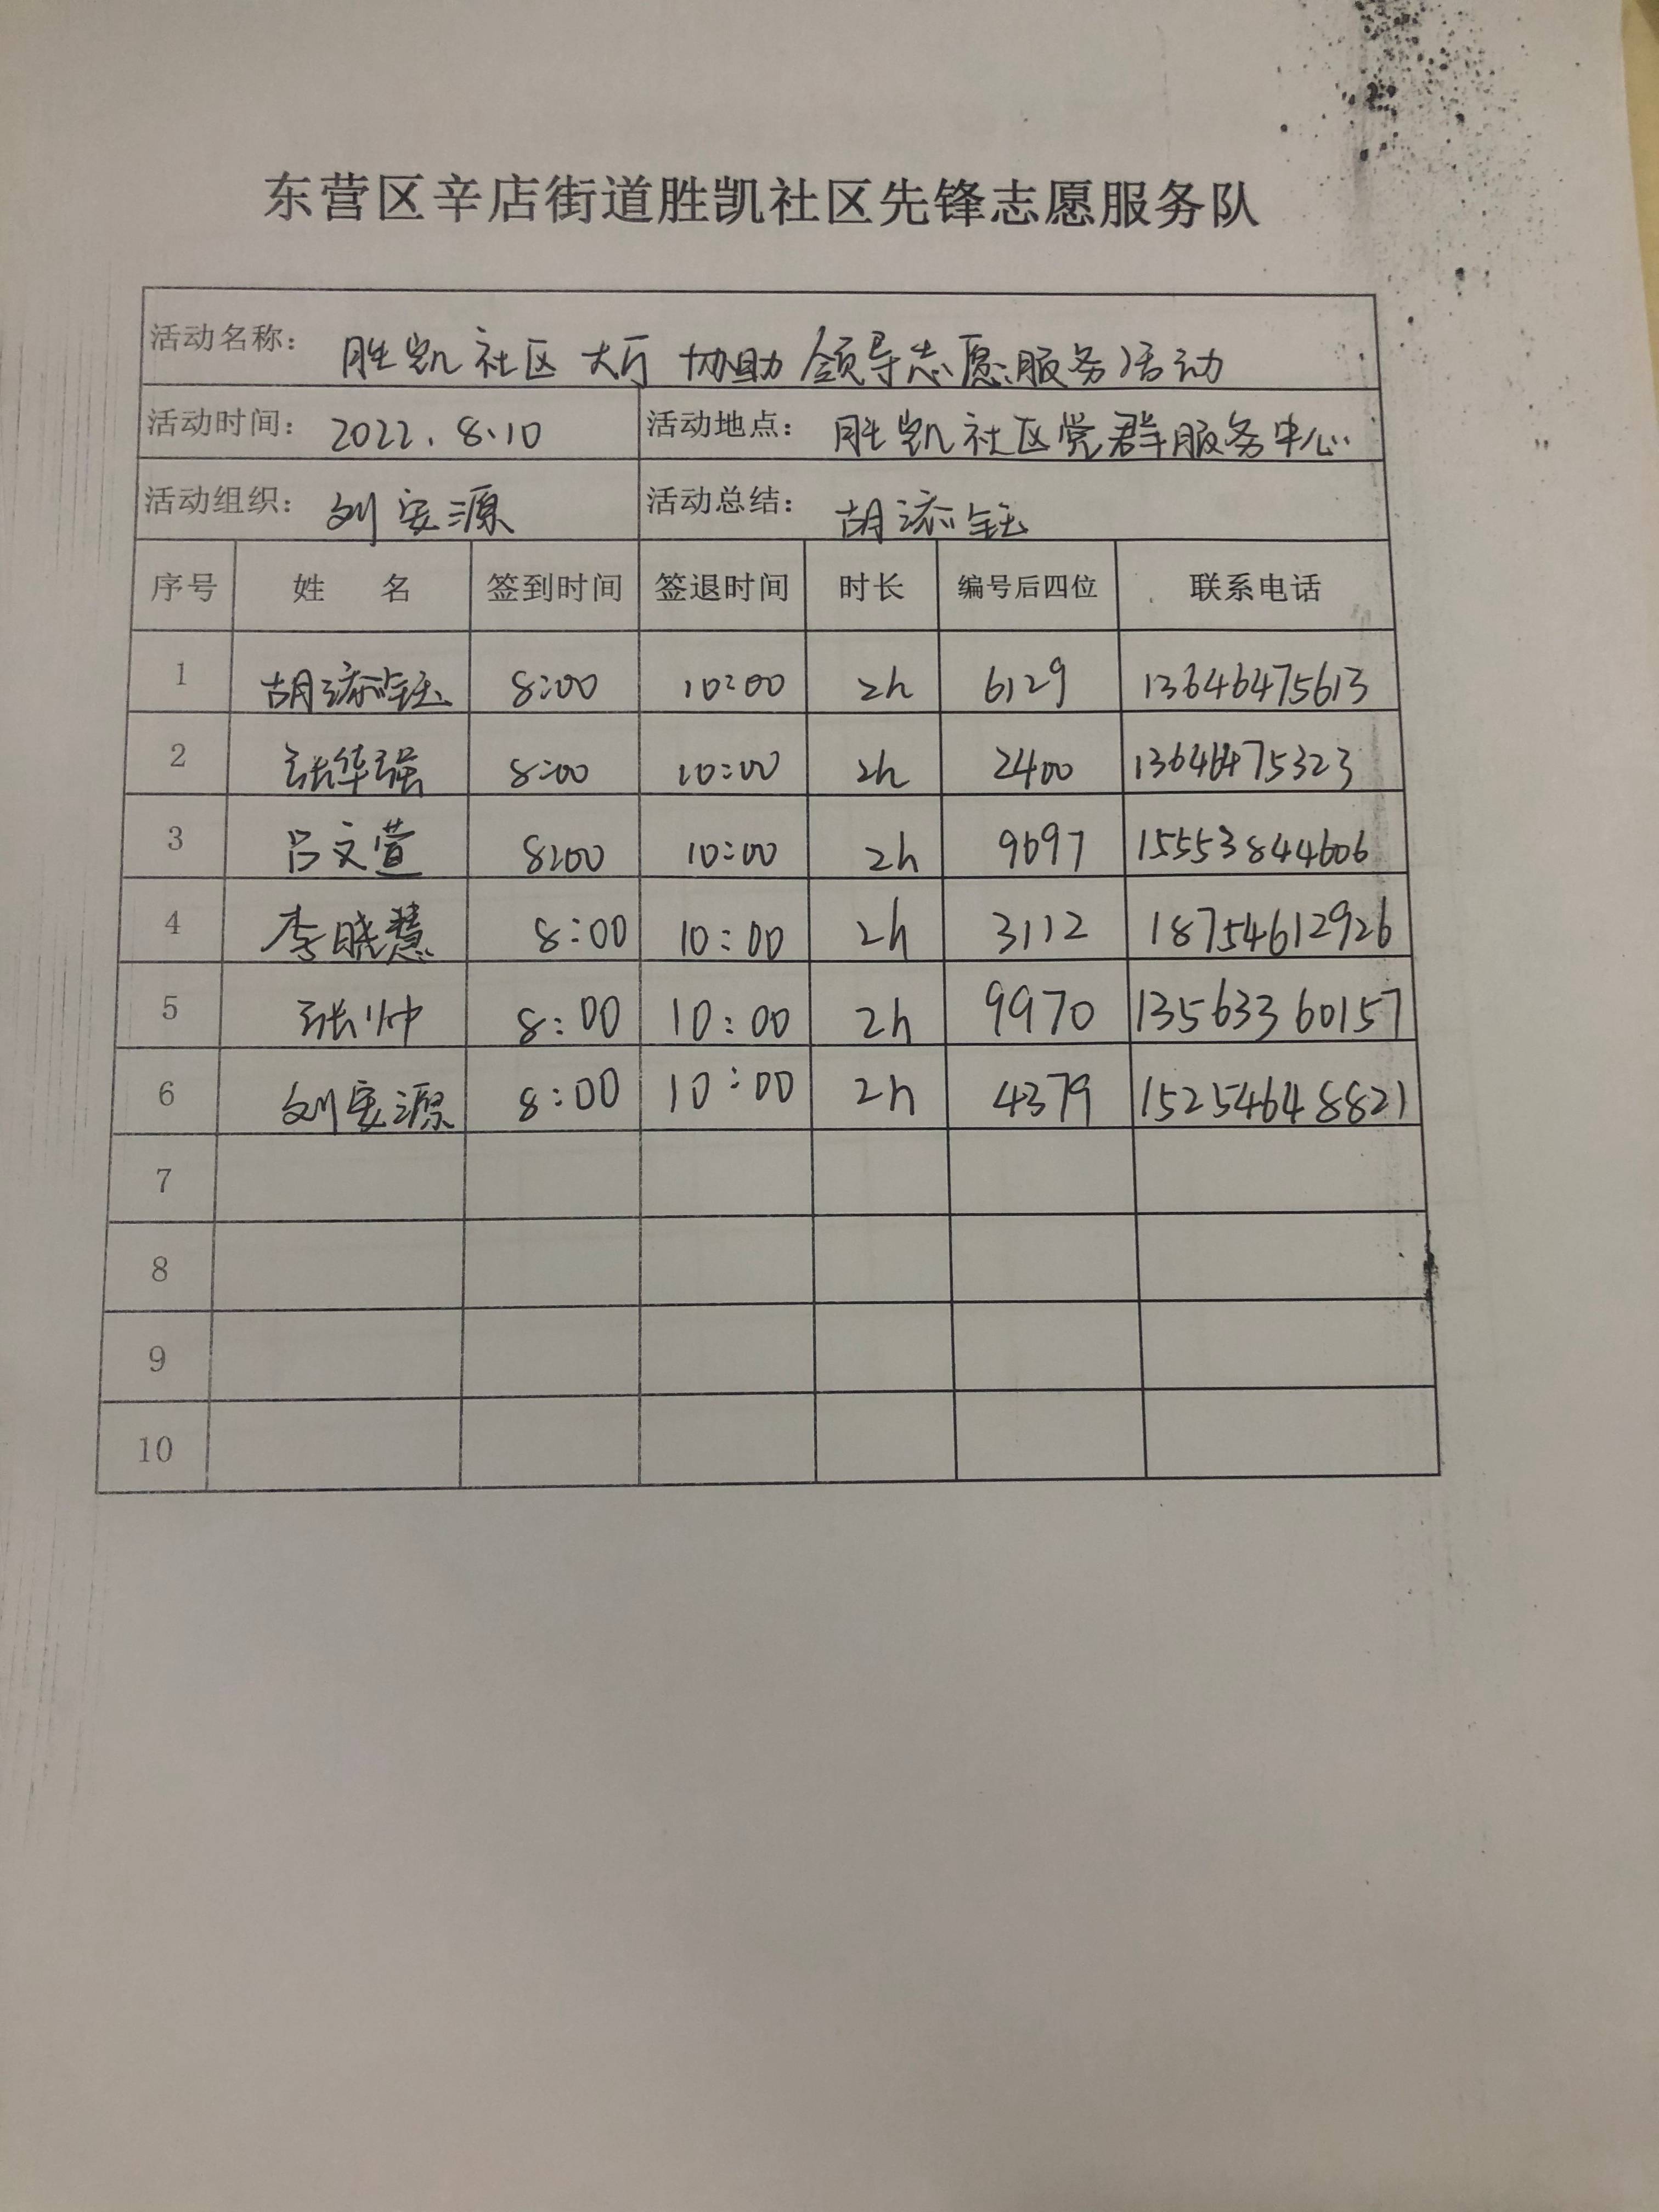 东营区辛店街道胜凯社区先锋志愿服务队
活动名称： 胜凯社区大厅协助领导志愿服务活动
活动时间： 2022.8.10 活动地点： 胜凯社区党群服务中心
活动组织： 刘安源 活动总结： 胡添钰
序号 姓 名 签到时间 签退时间 时长 编号后四位 联系电话
1 胡添钰 8:00 10:00 2h 6129 13646475613
2 张华强 8:00 10:00 2h 2400 13646475323
3 吕文萱 8:00 10:00 2h 9697 15553844606
4 李晓慧 8:00 10:00 2h 3112 18754612926
5 张帅 8:00 10:00 2h 9970 13563360157
6 刘安源 8:00 10:00 2h 4379 15254648821
7
8
9
10